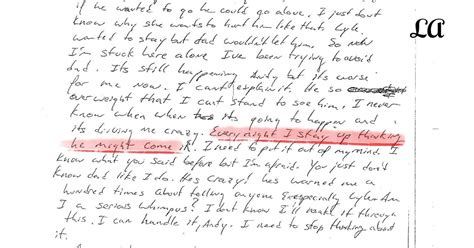 if he wanted to go he could go alone. I just dont
know why she wants to hurt him like that. Lyle
wanted to stay but dad wouldn't let him. So now
I'm stuck here alone I've been trying to avoid
dad. Its still happening Andy but its worse
for me now. I cant explain it. He so
overweight that I cant stand to see him. I never
know when its going to happen and
its driving me crazy. Every night I stay up thinking
he might come in. I need to put it out of my mind. I
know what you said before but I'm afraid. You just don't
know dad like I do. Hes crazy! hes warned me a
hundred times about telling anyone especially Lyle. Am
I a serious whimpus? I dont know I'll make it through
this. I can handle it, Andy. I need to stop thinking about
it.
LA